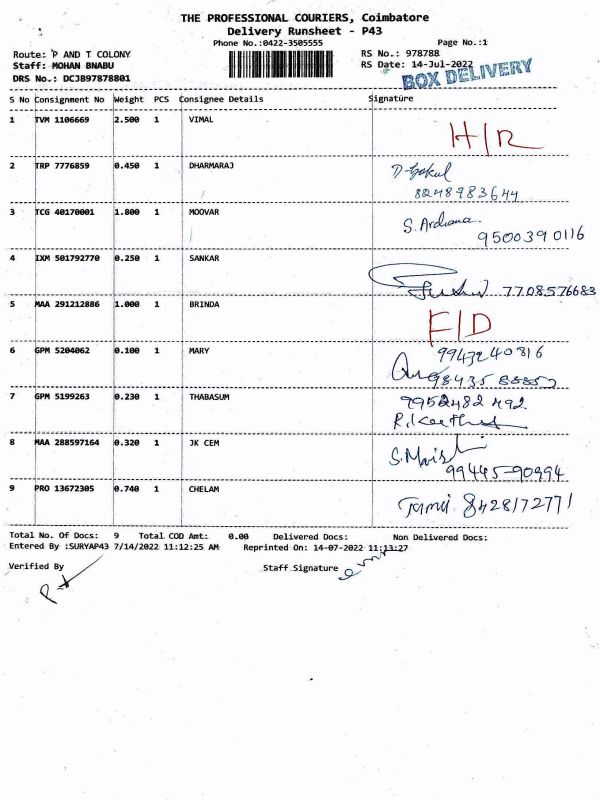 THE PROFESSIONAL COURIERS, Coimbatore
Delivery Runsheet - P43
Phone No.:0422-3505555 Page No.:1
Route: P AND T COLONY RS No.: 978788
Staff: MOHAN BNABU RS Date: 14-Jul-2022
DRS No.: DCJB97878801 BOX DELIVERY
S No Consignment No Weight PCS Consignee Details Signature
1 TVM 1106669 2.500 1 VIMAL
H/R
2 TRP 7776859 0.450 1 DHARMARAJ D-Gokul
8248983644
3 TCG 40170001 1.800 1 MOOVAR S. Ardhana.
9500390116
4 IXM 501792770 0.250 1 SANKAR
7708576683
5 MAA 291212886 1.000 1 BRINDA F/D
6 GPM 5204062 0.100 1 MARY 9943240816
7 GPM 5199263 0.230 1 THABASUM 9952482492
8 MAA 288597164 0.320 1 JK CEM
99445-90994
9 PRO 13672305 0.740 1 CHELAM 8428172771
Total No. Of Docs: 9 Total COD Amt: 0.00 Delivered Docs: Non Delivered Docs:
Entered By :SURYAP43 7/14/2022 11:12:25 AM Reprinted On: 14-07-2022 11:13:27
Verified By Staff Signature